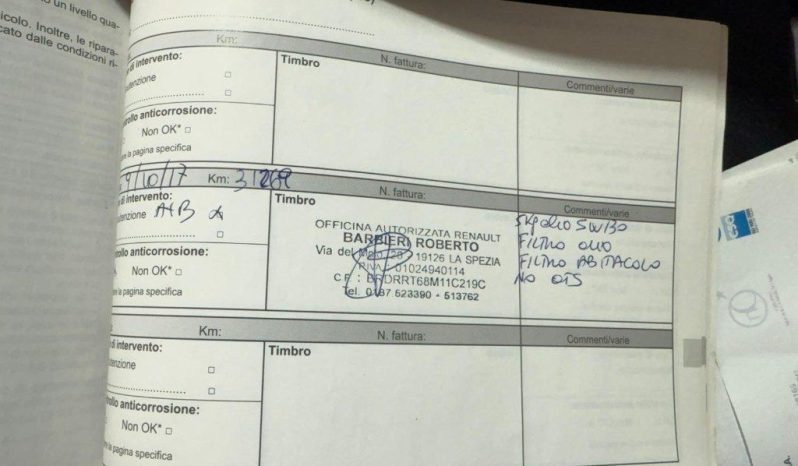 o un livello qua-
icolo. Inoltre, le ripara-
cato dalle condizioni ri-
Km:
N. fattura:
Commenti/varie
di intervento:
Timbro
utenzione
ollo anticorrosione:
Non OK*
re la pagina specifica
9/10/17 Km: 31269
N. fattura:
Commenti/varie
di intervento:
Timbro
utenzione A+B
ollo anticorrosione:
Non OK*
re la pagina specifica
OFFICINA AUTORIZZATA RENAULT
BARBIERI ROBERTO
Via del 19126 LA SPEZIA
P.IVA 01024940114
C.F.: BRDRRT68M11C219C
Tel. 0187 523390 - 513762
5W30
FILTRO OLIO
FILTRO ABITACOLO
NO OTS
Km:
N. fattura:
Commenti/varie
di intervento:
Timbro
utenzione
ollo anticorrosione:
Non OK*
e la pagina specifica